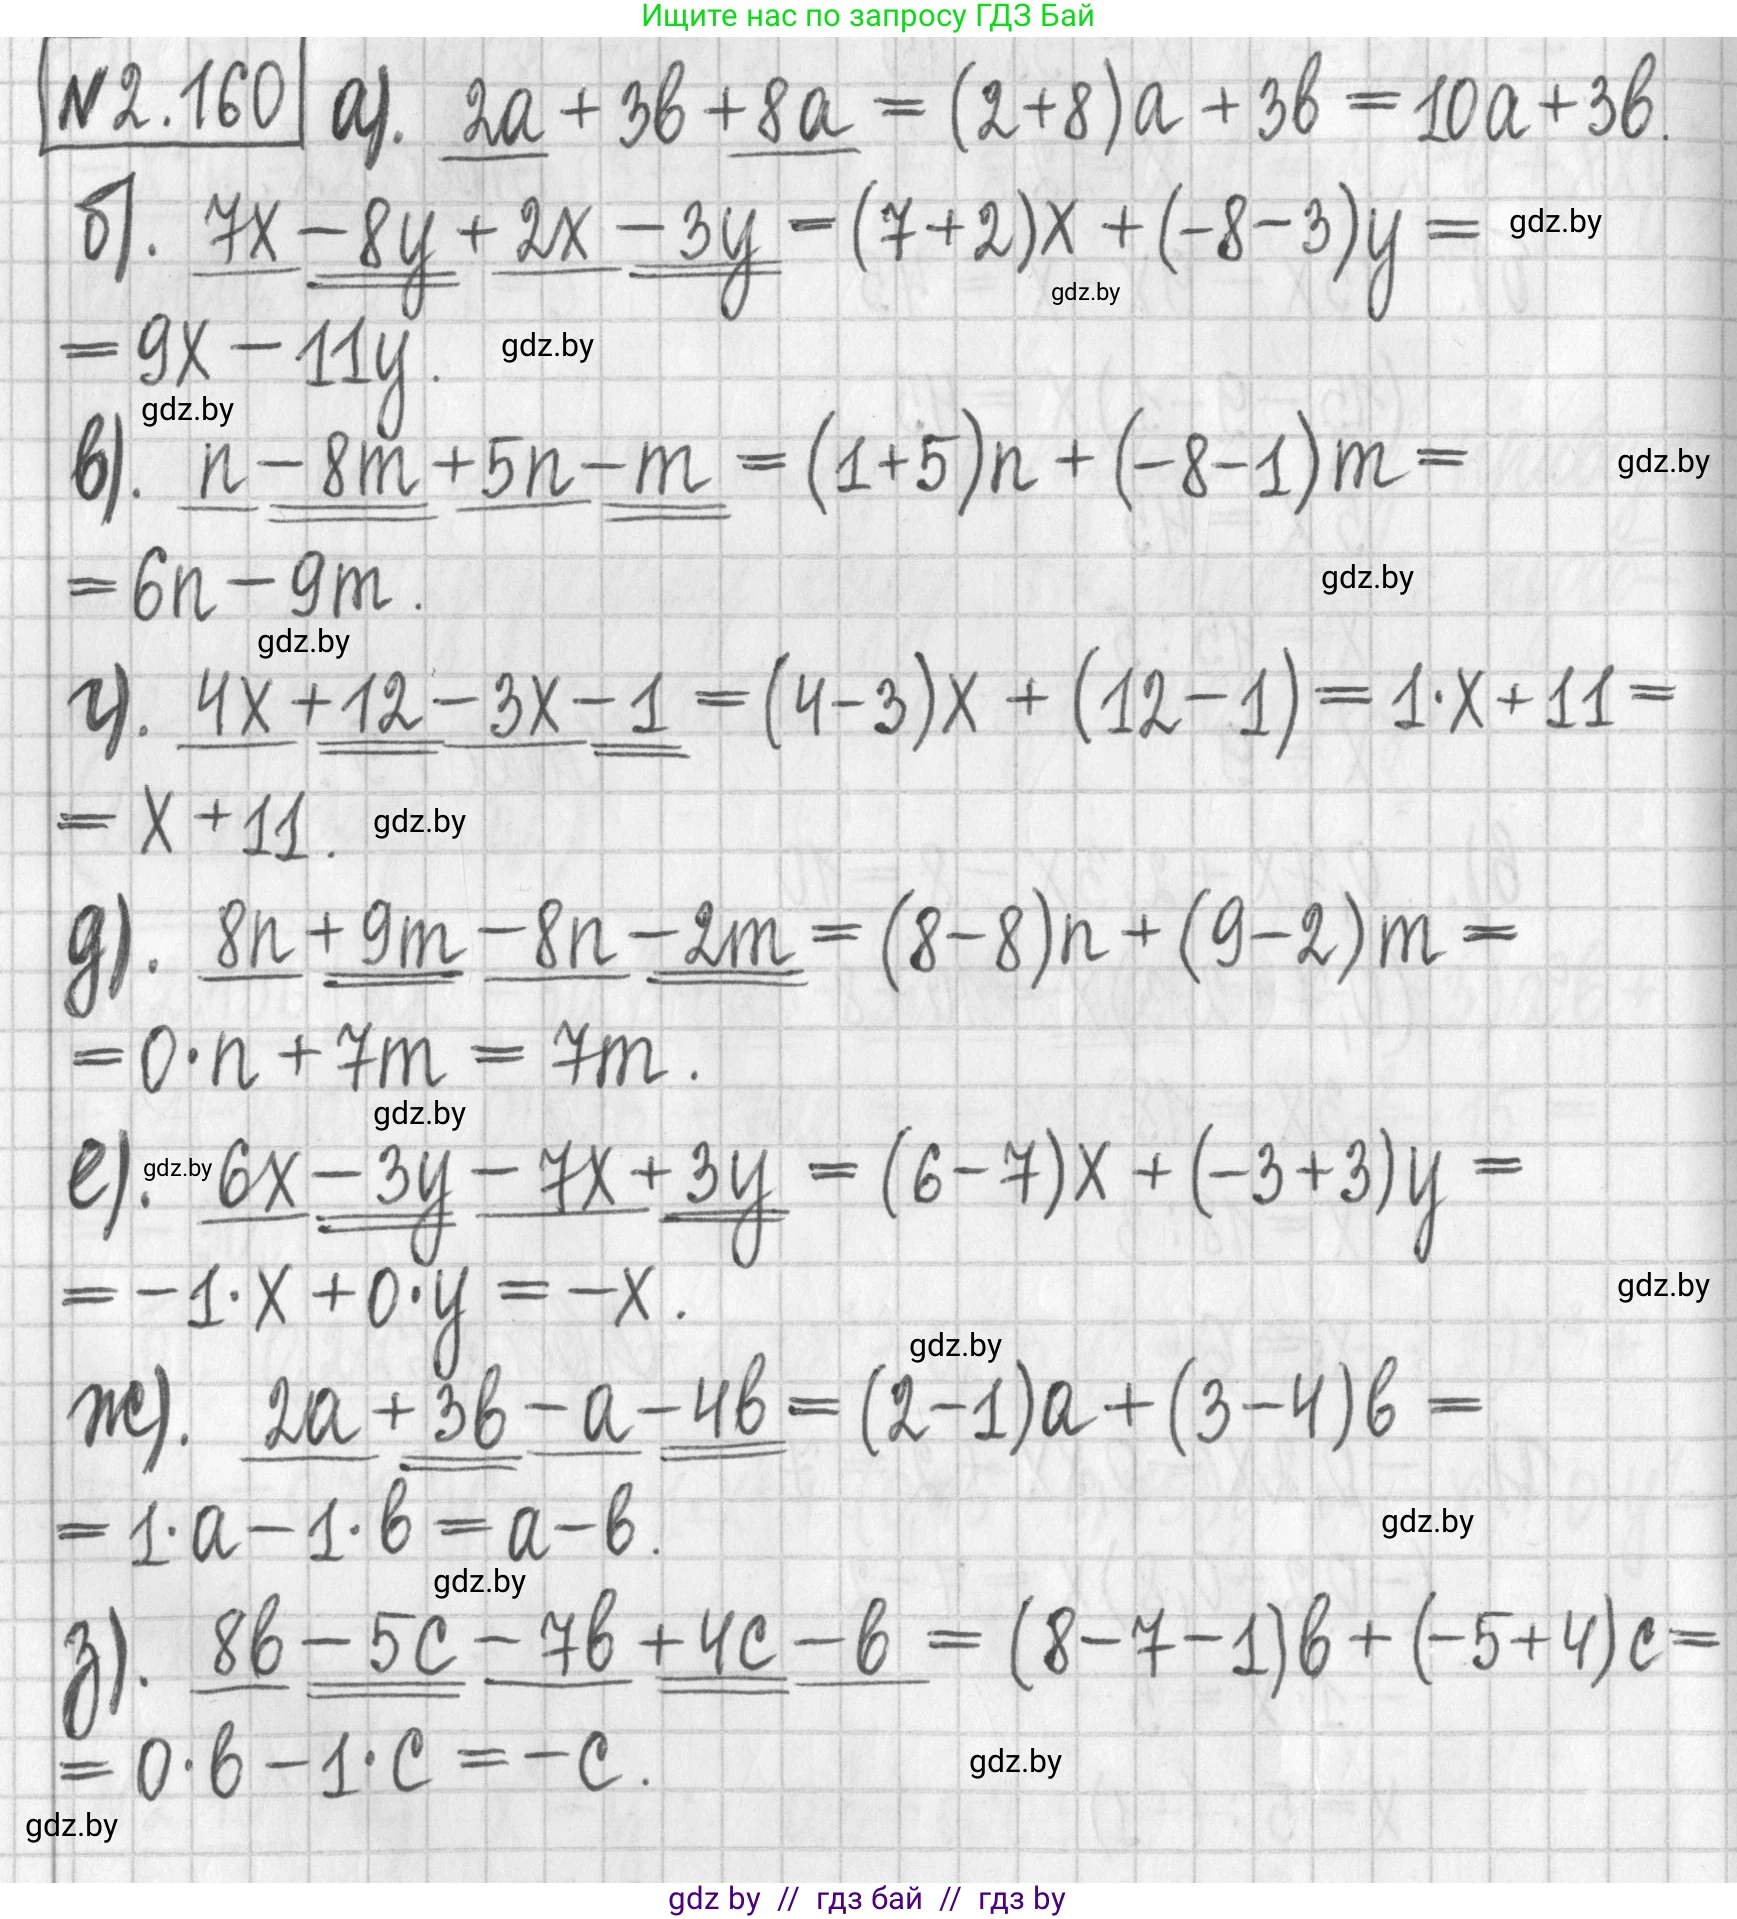 Ищите нас по запросу ГДЗ Бай
№2.160 а). 2a + 3b + 8a = (2+8)a + 3b = 10a + 3b.
б). 7x - 8y + 2x - 3y = (7+2)x + (-8-3)y = gdz.by
gdz.by
= 9x - 11y. gdz.by
gdz.by
в). n - 8m + 5n - m = (1+5)n + (-8-1)m = gdz.by
= 6n - 9m. gdz.by
gdz.by
г). 4x + 12 - 3x - 1 = (4-3)x + (12-1) = 1·x + 11 =
= x + 11. gdz.by
д). 8n + 9m - 8n - 2m = (8-8)n + (9-2)m =
= 0·n + 7m = 7m.
gdz.by
е). gdz.by 6x - 3y - 7x + 3y = (6-7)x + (-3+3)y =
= -1·x + 0·y = -x. gdz.by
gdz.by
ж). 2a + 3b - a - 4b = (2-1)a + (3-4)b =
= 1·a - 1·b = a - b. gdz.by
gdz.by
з). 8b - 5c - 7b + 4c - b = (8-7-1)b + (-5+4)c =
= 0·b - 1·c = -c. gdz.by
gdz.by
gdz by // гдз бай // гдз by